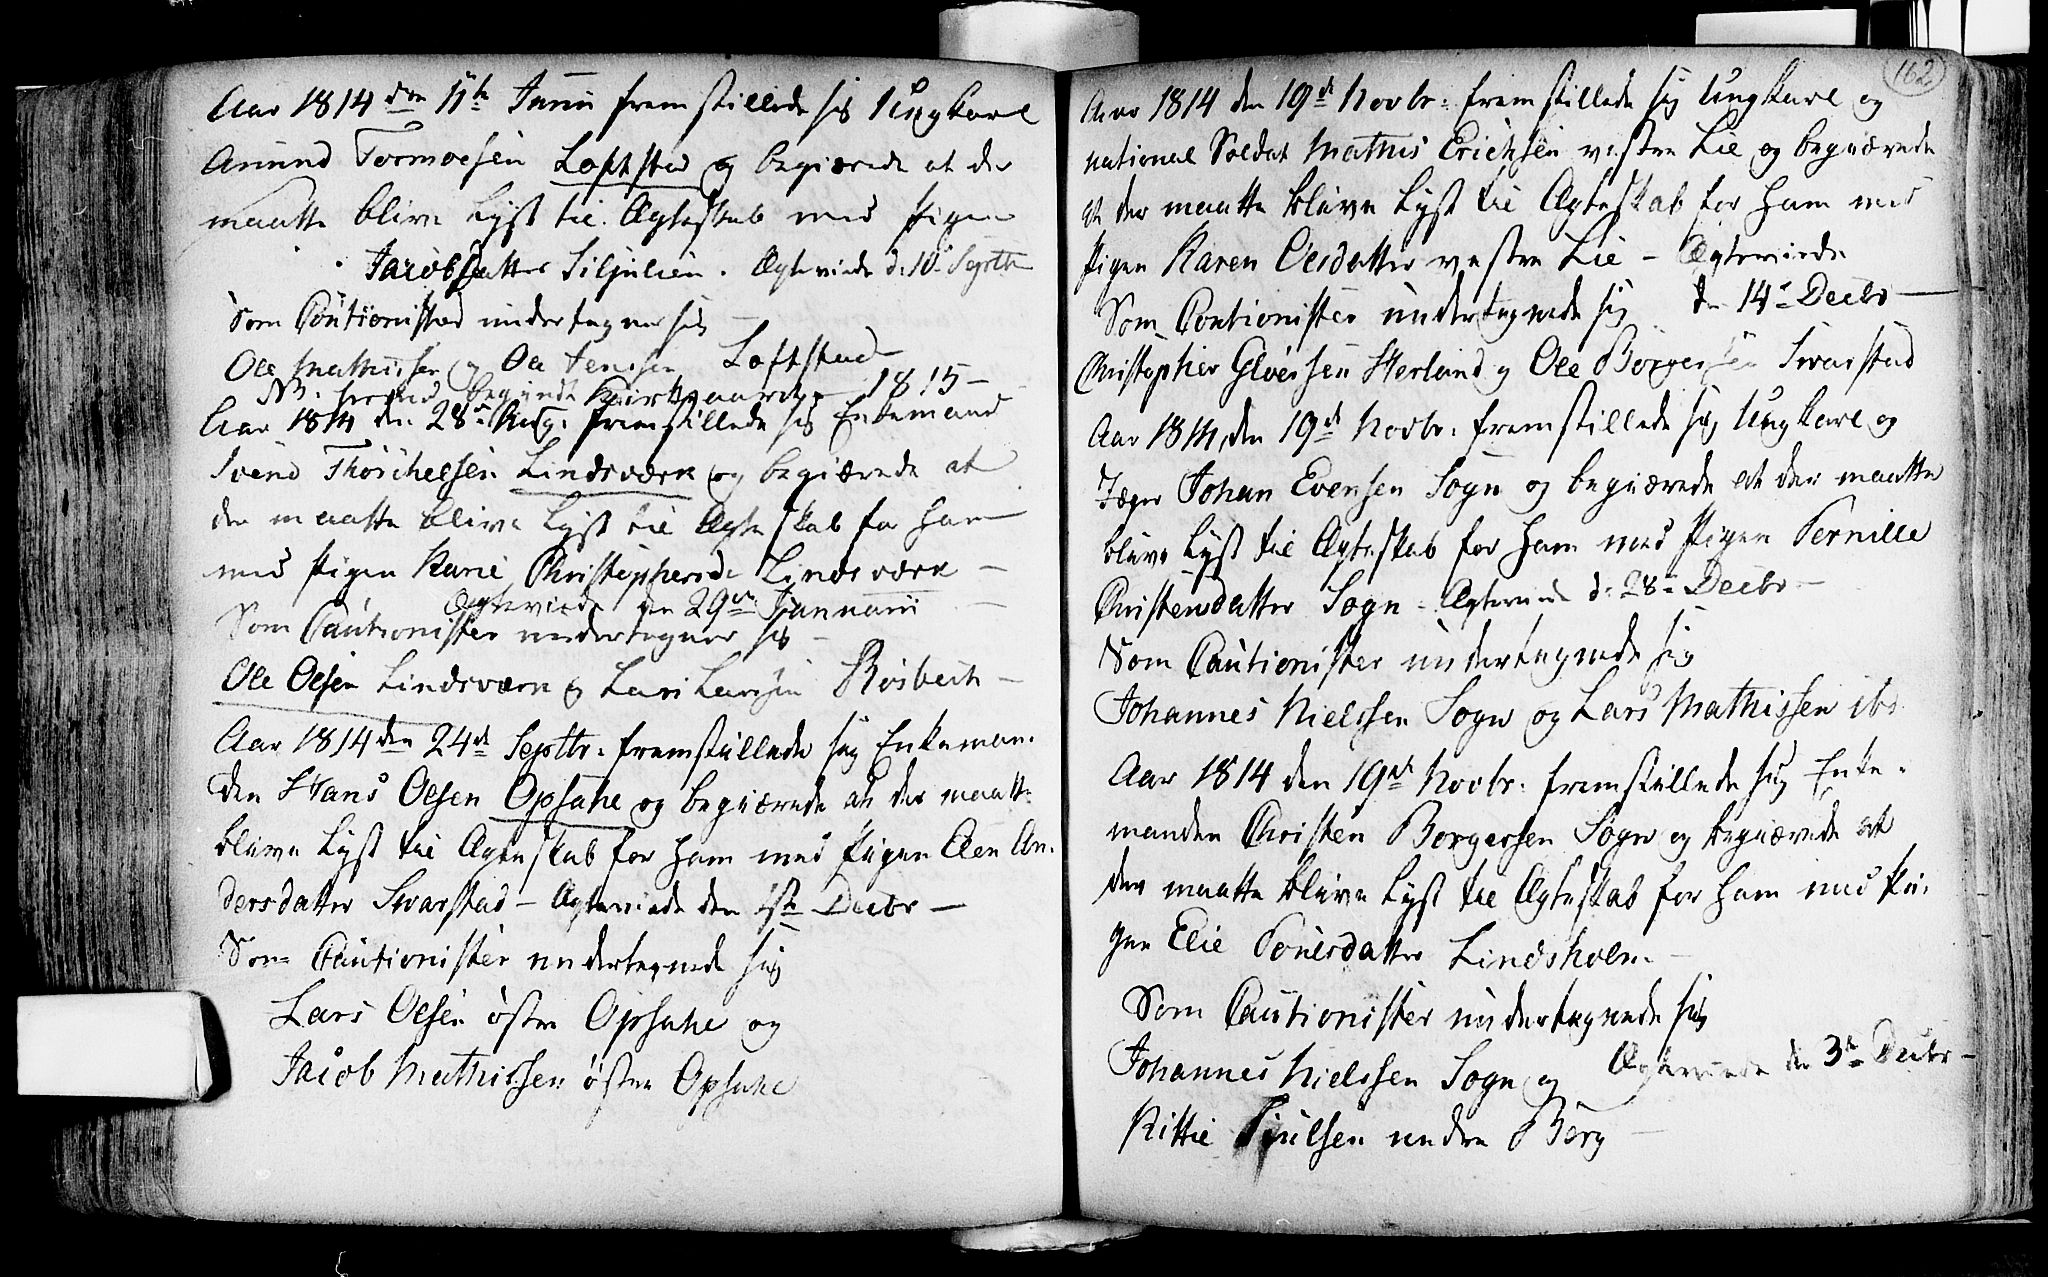 Aar 1814 den 11te Junii fremstillede sig Ungkarl
Amund Tormoesen Loftstad og begiærede at der
maatte blive Lyst til Ægteskab med Pigen
Jacobsdatter Siljulien. Ægteviede d: 10 Septbr
Som Cautionister undertegner sig
Ole Mathissen og Ole Jensen Loftstad
NB. herved begynder Kirkeaaret 1815 -
Aar 1814 den 28de Aug: fremstillede sig Enkemand
Svend Thorchelsen Lindsværk og begiærede at
der maatte blive Lyst til Ægteskab for ham
med Pigen Karie Christophersd: Lindsværk -
Ægteviede den 29de Januarii
Som Cautionister undertegner sig -
Ole Olsen Lindsværn og Lars Larsen Rosbech -
Aar 1814 den 24de Septbr: fremstillede sig Enkeman-
den Hans Olsen Opsahl og begiærede at der maatte
blive Lyst til Ægteskab for ham med Pigen Aen An-
dersdatter Svarstad - Ægteviede den 1ste Decbr -
Som Cautionister undertegnede sig
Lars Olsen østre Opsahl og
Jacob Mathissen østre Opsahl
162
Aar 1814 den 19de Novbr: fremstillede sig Ungkarl og
national Soldat Mathis Erichsen vestre Lie og begiærede
at der maatte blive Lyst til Ægteskab for ham med
Pigen Karen Olesdatter vestre Lie - Ægteviede
Som Cautionister undertegnede sig den 14de Decbr -
Christopher Gloersen Herland og Ole Borgersen Svarstad
Aar 1814, den 19de Novbr: fremstillede sig Ungkarl og
Jæger Johan Evensen Sogn og begiærede at der maatte
blive Lyst til Ægteskab for ham med Pigen Pernille
Christensdatter Sogn - Ægteviede d: 28de Decbr -
Som Cautionister undertegnede sig
Johannes Nielssen Sogn og Lars Mathissen ibd
Aar 1814 den 19de Novbr: fremstillede sig Enke-
manden Christen Borgersen Sogn og begiærede at
der maatte blive Lyst til Ægteskab for ham med Pi-
gen Elie Povelsdatter Lindsholm -
Som Cautionister undertegnede sig
Johannes Nielssen Sogn og Ægteviede den 3de Decbr -
Kittil Tjulsen nedre Berg -